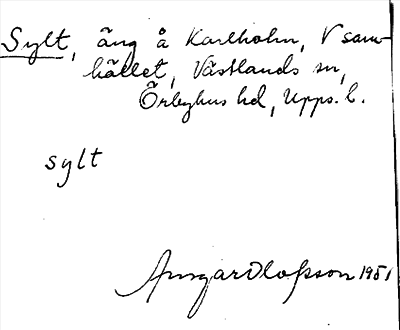 Sylt, äng å Karlholm, V sam-
hället, Västlands sn,
Örbyhus hd, Upps. l.
sylt
Ansgar Olofsson 1951